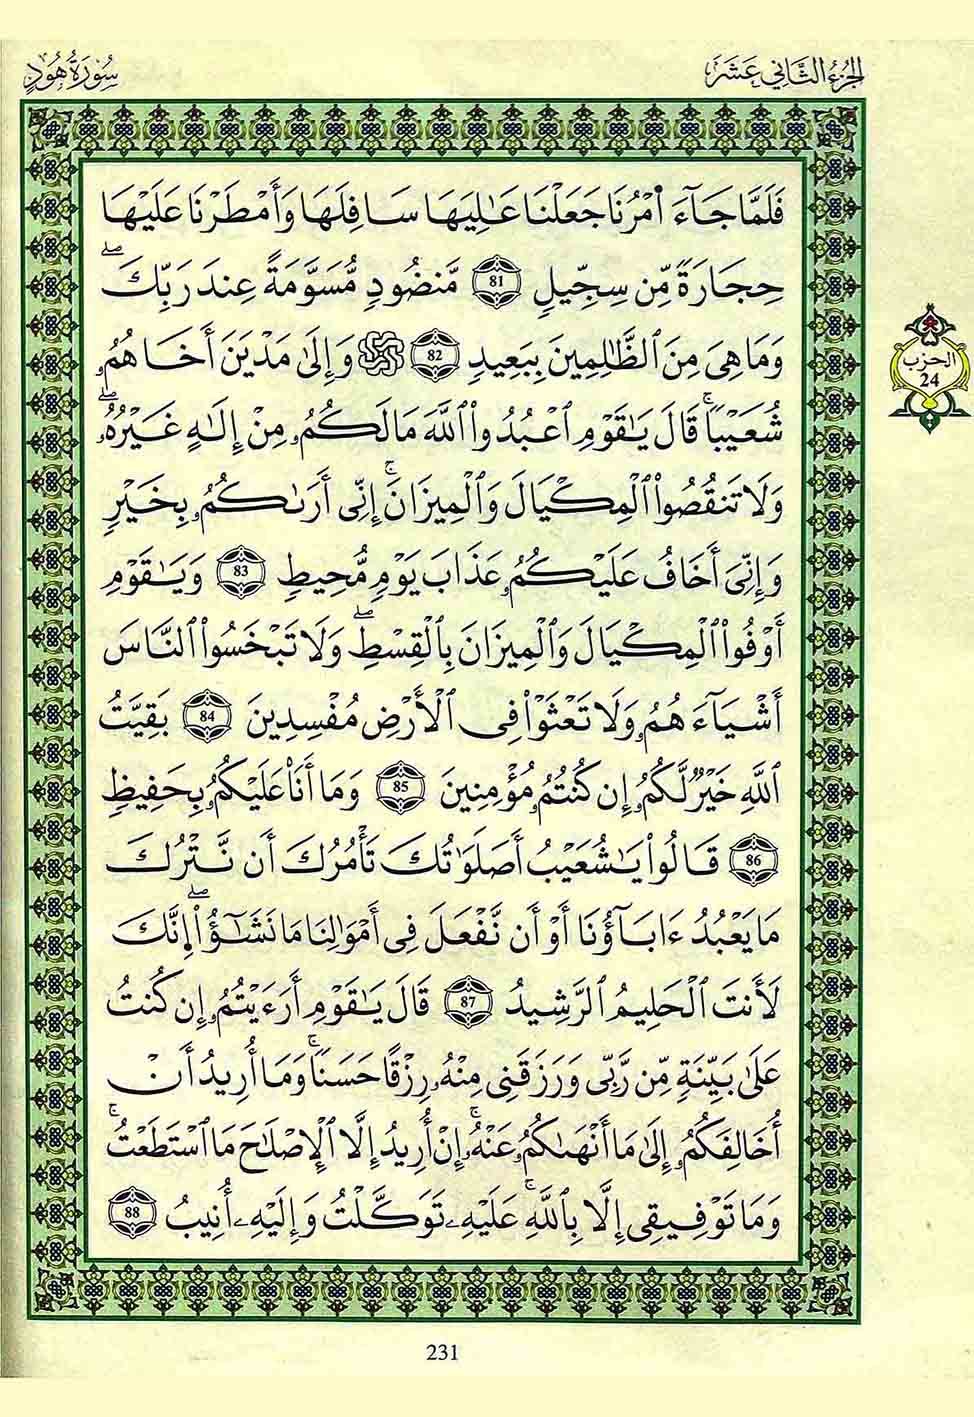 الجزء الثاني عشر
سورة هود
فَلَمَّا جَآءَ اٰمْرُنَا جَعَلْنَا عَٰلِيَهَا سَافِلَهَا وَأَمْطَرْنَا عَلَيْهَا
حِجَارَةً مِّن سِجِّيلٍ 81 مَّنضُودٍ مُّسَوَّمَةً عِندَ رَبِّكَۖ
وَمَا هِيَ مِنَ ٱلظَّٰلِمِينَ بِبَعِيدٍ 82 ۞ وَإِلَىٰ مَدْيَنَ أَخَاهُمُۥ
شُعَيْبًاۚ قَالَ يَٰقَوْمِ ٱعْبُدُوا۟ ٱللَّهَ مَا لَكُمُۥ مِنْ إِلَٰهٍ غَيْرُهُۥۖ
وَلَا تَنقُصُوا۟ ٱلْمِكْيَالَ وَٱلْمِيزَانَۚ إِنِّى أَرَىٰكُمُۥ بِخَيْرٍ
وَإِنِّىَ أَخَافُ عَلَيْكُمُۥ عَذَابَ يَوْمٍ مُّحِيطٍ 83 وَيَٰقَوْمِ
أَوْفُوا۟ ٱلْمِكْيَالَ وَٱلْمِيزَانَ بِٱلْقِسْطِۖ وَلَا تَبْخَسُوا۟ ٱلنَّاسَ
أَشْيَآءَهُمُۥ وَلَا تَعْثَوْا۟ فِى ٱلْأَرْضِ مُفْسِدِينَ 84 بَقِيَّتُ
ٱللَّهِ خَيْرٌ لَّكُمُۥ إِن كُنتُمُۥ مُؤْمِنِينَ 85 وَمَا أَنَا۠ عَلَيْكُمُۥ بِحَفِيظٍ
86 قَالُوا۟ يَٰشُعَيْبُ أَصَلَوَٰتُكَ تَأْمُرُكَ أَن نَّتْرُكَ
مَا يَعْبُدُ ءَابَآؤُنَا أَوْ أَن نَّفْعَلَ فِى أَمْوَٰلِنَا مَا نَشَٰٓؤُا۟ۖ اِنَّكَ
لَأَنتَ ٱلْحَلِيمُ ٱلرَّشِيدُ 87 قَالَ يَٰقَوْمِ أَرَءَيْتُمُۥ إِن كُنتُ
عَلَىٰ بَيِّنَةٍ مِّن رَّبِّى وَرَزَقَنِى مِنْهُۥ رِزْقًا حَسَنًاۚ وَمَا أُرِيدُ أَنْ
أُخَالِفَكُمُۥ إِلَىٰ مَا أَنْهَىٰكُمُۥ عَنْهُۚ إِنْ أُرِيدُ إِلَّا ٱلْإِصْلَٰحَ مَا ٱسْتَطَعْتُۚ
وَمَا تَوْفِيقِى إِلَّا بِٱللَّهِۚ عَلَيْهِۦ تَوَكَّلْتُ وَإِلَيْهِۦ أُنِيبُ 88
الحزب
24
231